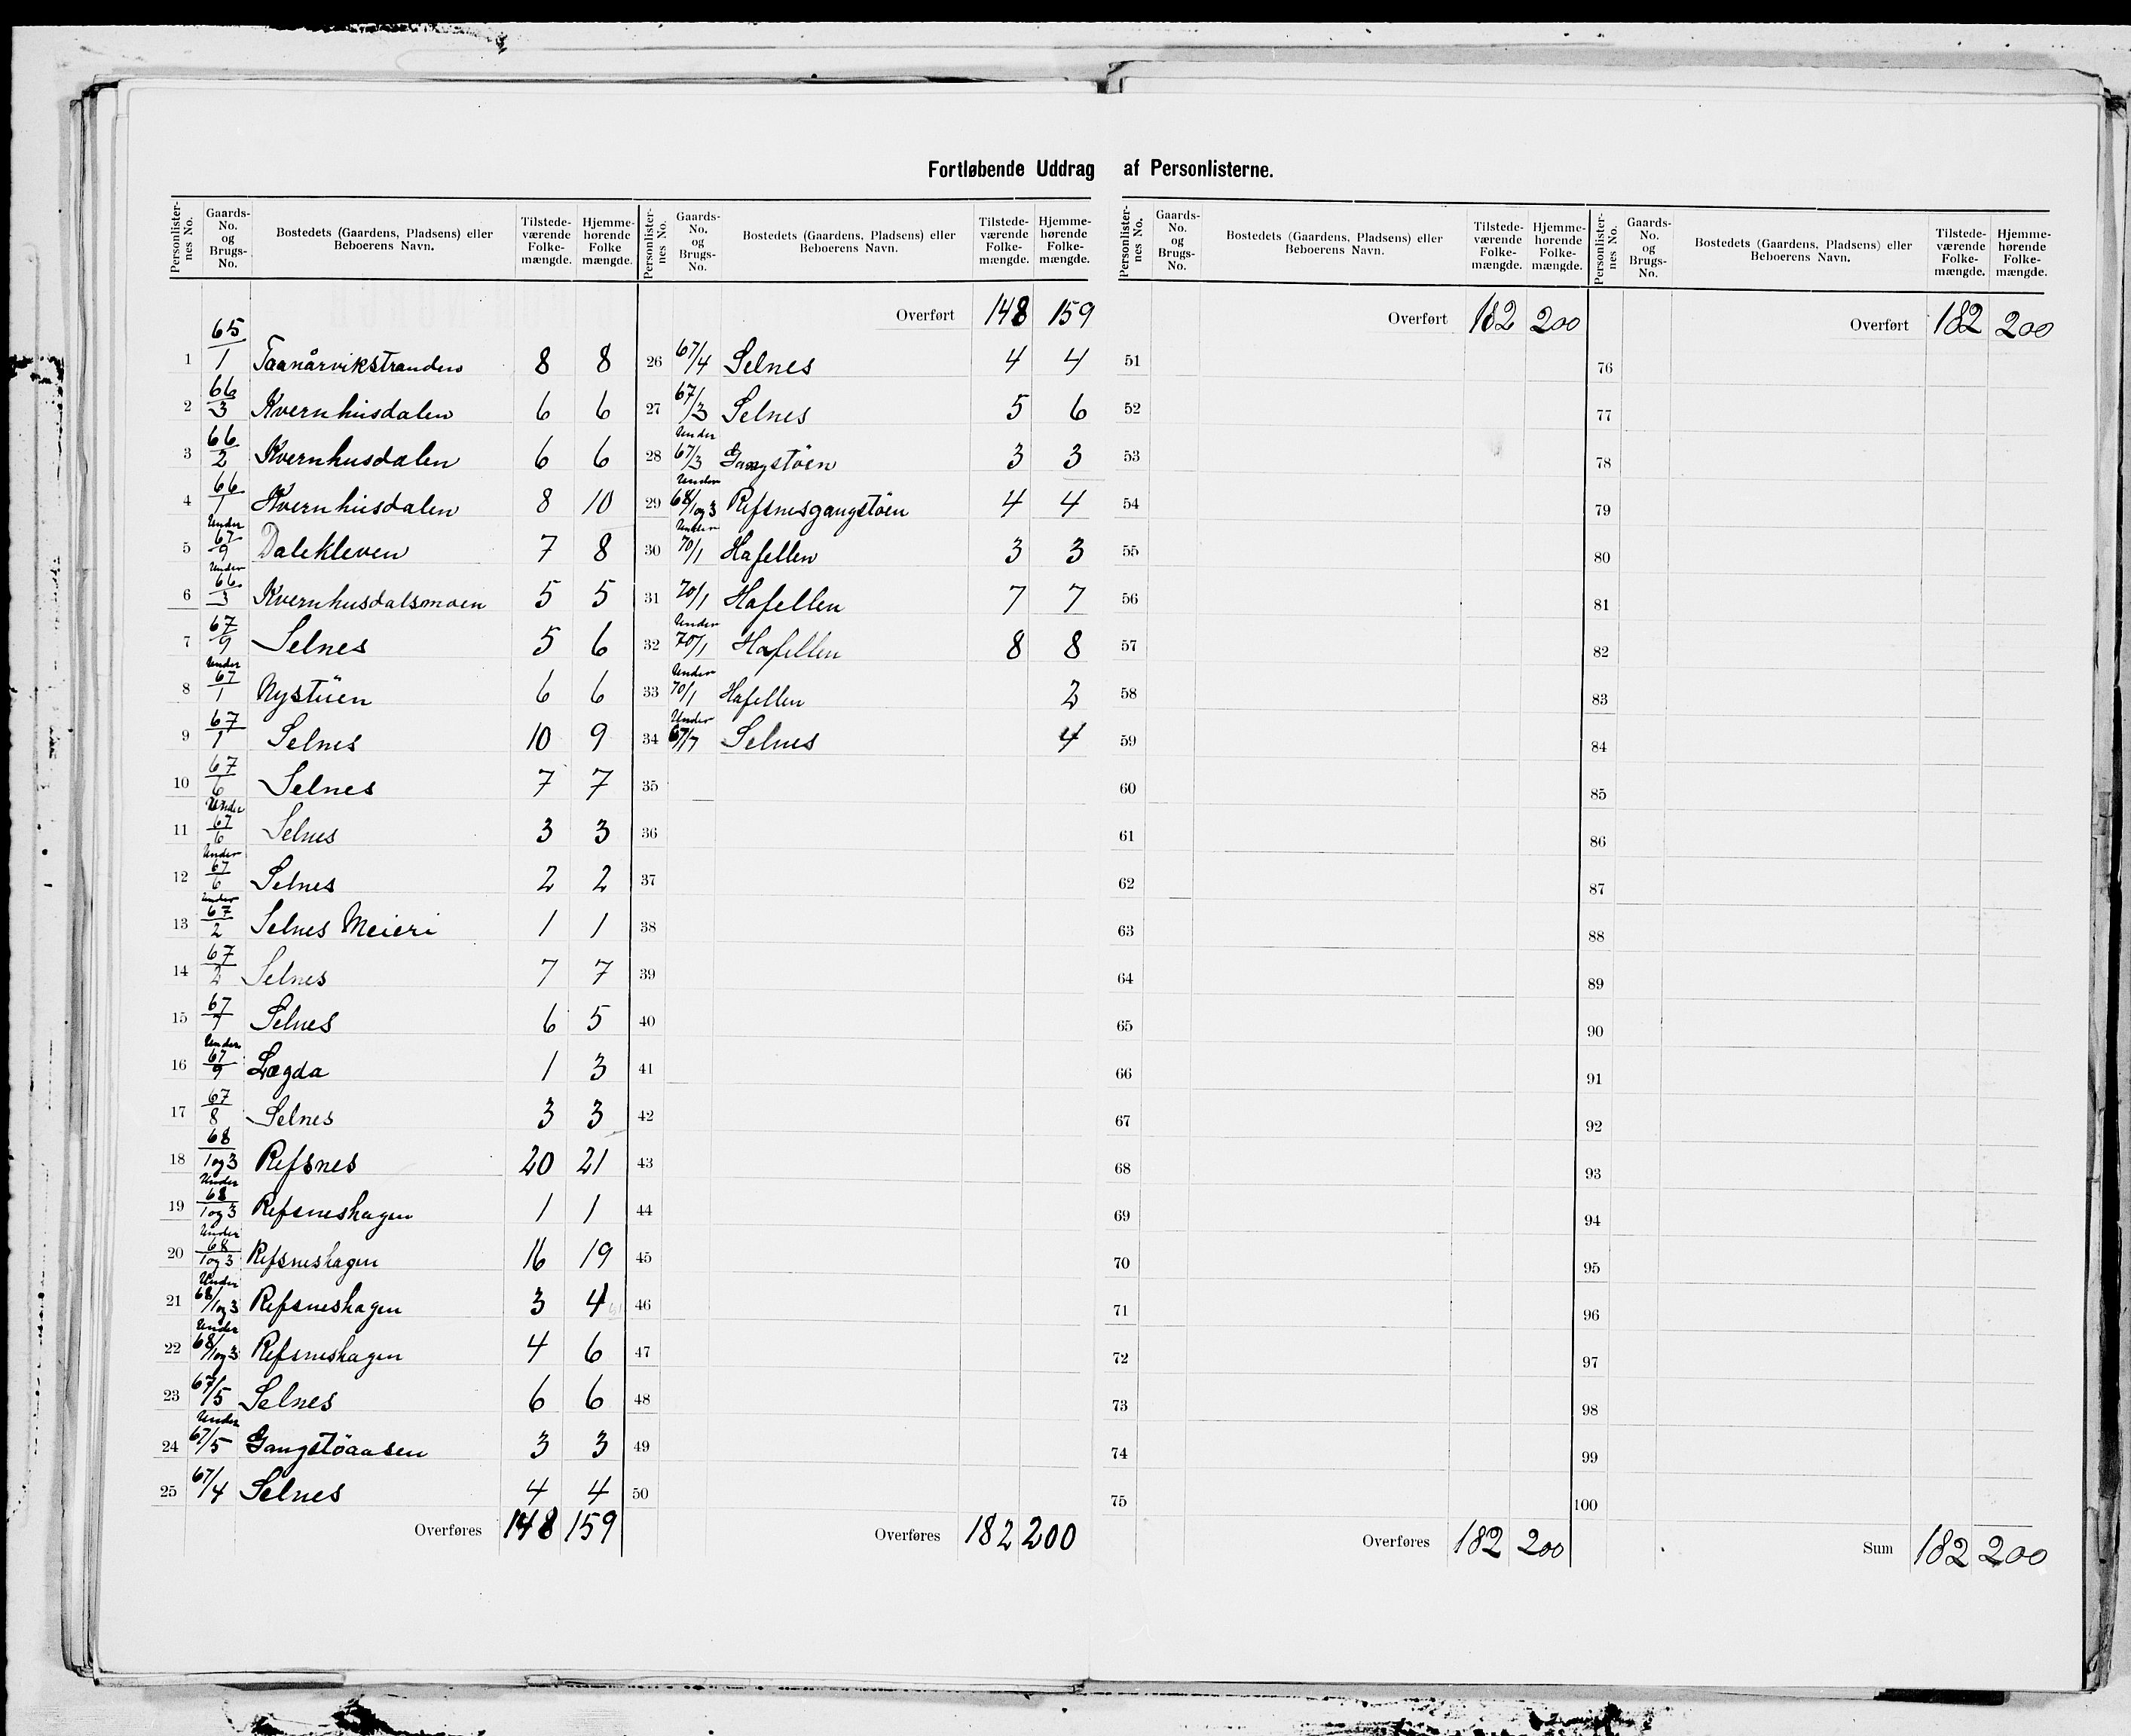 Fortløbende Uddrag af Personlisterne.
Personlister-nes No. Gaards-No. og Brugs-No. Bostedets (Gaardens, Pladsens) eller Beboerens Navn. Tilstede-værende Folke-mængde. Hjemme-hørende Folke mængde.
65
1 1 8 8
2 66/3 Kvernhusdalen 6 6
3 66/2 Kvernhusdalen 6 6
4 66/1 Kvernhusdalen 8 10
Under
5 67/9 Dalekleven 7 8
Under
6 66/3 Kvernhusdalsmoen 5 5
7 67/9 Selnes 5 6
Under
8 67/1 Nystuen 6 6
9 67/1 Selnes 10 9
10 67/6 Selnes 7 7
Under
11 67/6 Selnes 3 3
Under
12 67/6 Selnes 2 2
Under
13 67/2 Selnes Meieri 1 1
14 67/2 Selnes 7 7
15 67/7 Selnes 6 5
Under
16 67/9 Lægda 1 3
17 67/8 Selnes 3 3
18 68/1 og 3 Refsnes 20 21
Under
19 68/1 og 3 Refsneshagen 1 1
Under
20 68/1 og 3 Refsneshagen 16 19
Under
21 68/1 og 3 Refsneshagen 3 4
Under
22 68/1 og 3 Refsneshagen 4 6
23 67/5 Selnes 6 6
Under
24 67/5 Gangstöaasen 3 3
25 67/4 Selnes 4 4
Overføres 148 159
Personlister-nes No. Gaards-No. og Brugs-No. Bostedets (Gaardens, Pladsens) eller Beboerens Navn. Tilstede-værende Folke-mængde. Hjemme-hørende Folke-mængde.
Overført 148 159
26 67/4 Selnes 4 4
27 67/3 Selnes 5 6
Under
28 67/3 Gangstöen 3 3
Under
29 68/1 og 3 Refsnesgangstöen 4 4
Under
30 70/1 Hafellen 3 3
31 70/1 Hafellen 7 7
Under
32 70/1 Hafellen 8 8
Under
33 70/1 Hafellen 2
Under
34 67/7 Selnes 4
35
36
37
38
39
40
41
42
43
44
45
46
47
48
49
50
Overføres 182 200
Personlister-nes No. Gaards-No. og Brugs-No. Bostedets (Gaardens, Pladsens) eller Beboerens Navn. Tilstede-værende Folke-mængde. Hjemme-hørende Folke-mængde.
Overført 182 200
51
52
53
54
55
56
57
58
59
60
61
62
63
64
65
66
67
68
69
70
71
72
73
74
75
Overføres 182 200
Personlister-nes No. Gaards-No. og Brugs-No. Bostedets (Gaardens, Pladsens) eller Beboerens Navn. Tilstede-værende Folke-mængde. Hjemme-hørende Folke-mængde.
Overført 182 200
76
77
78
79
80
81
82
83
84
85
86
87
88
89
90
91
92
93
94
95
96
97
98
99
100
Sum 182 200